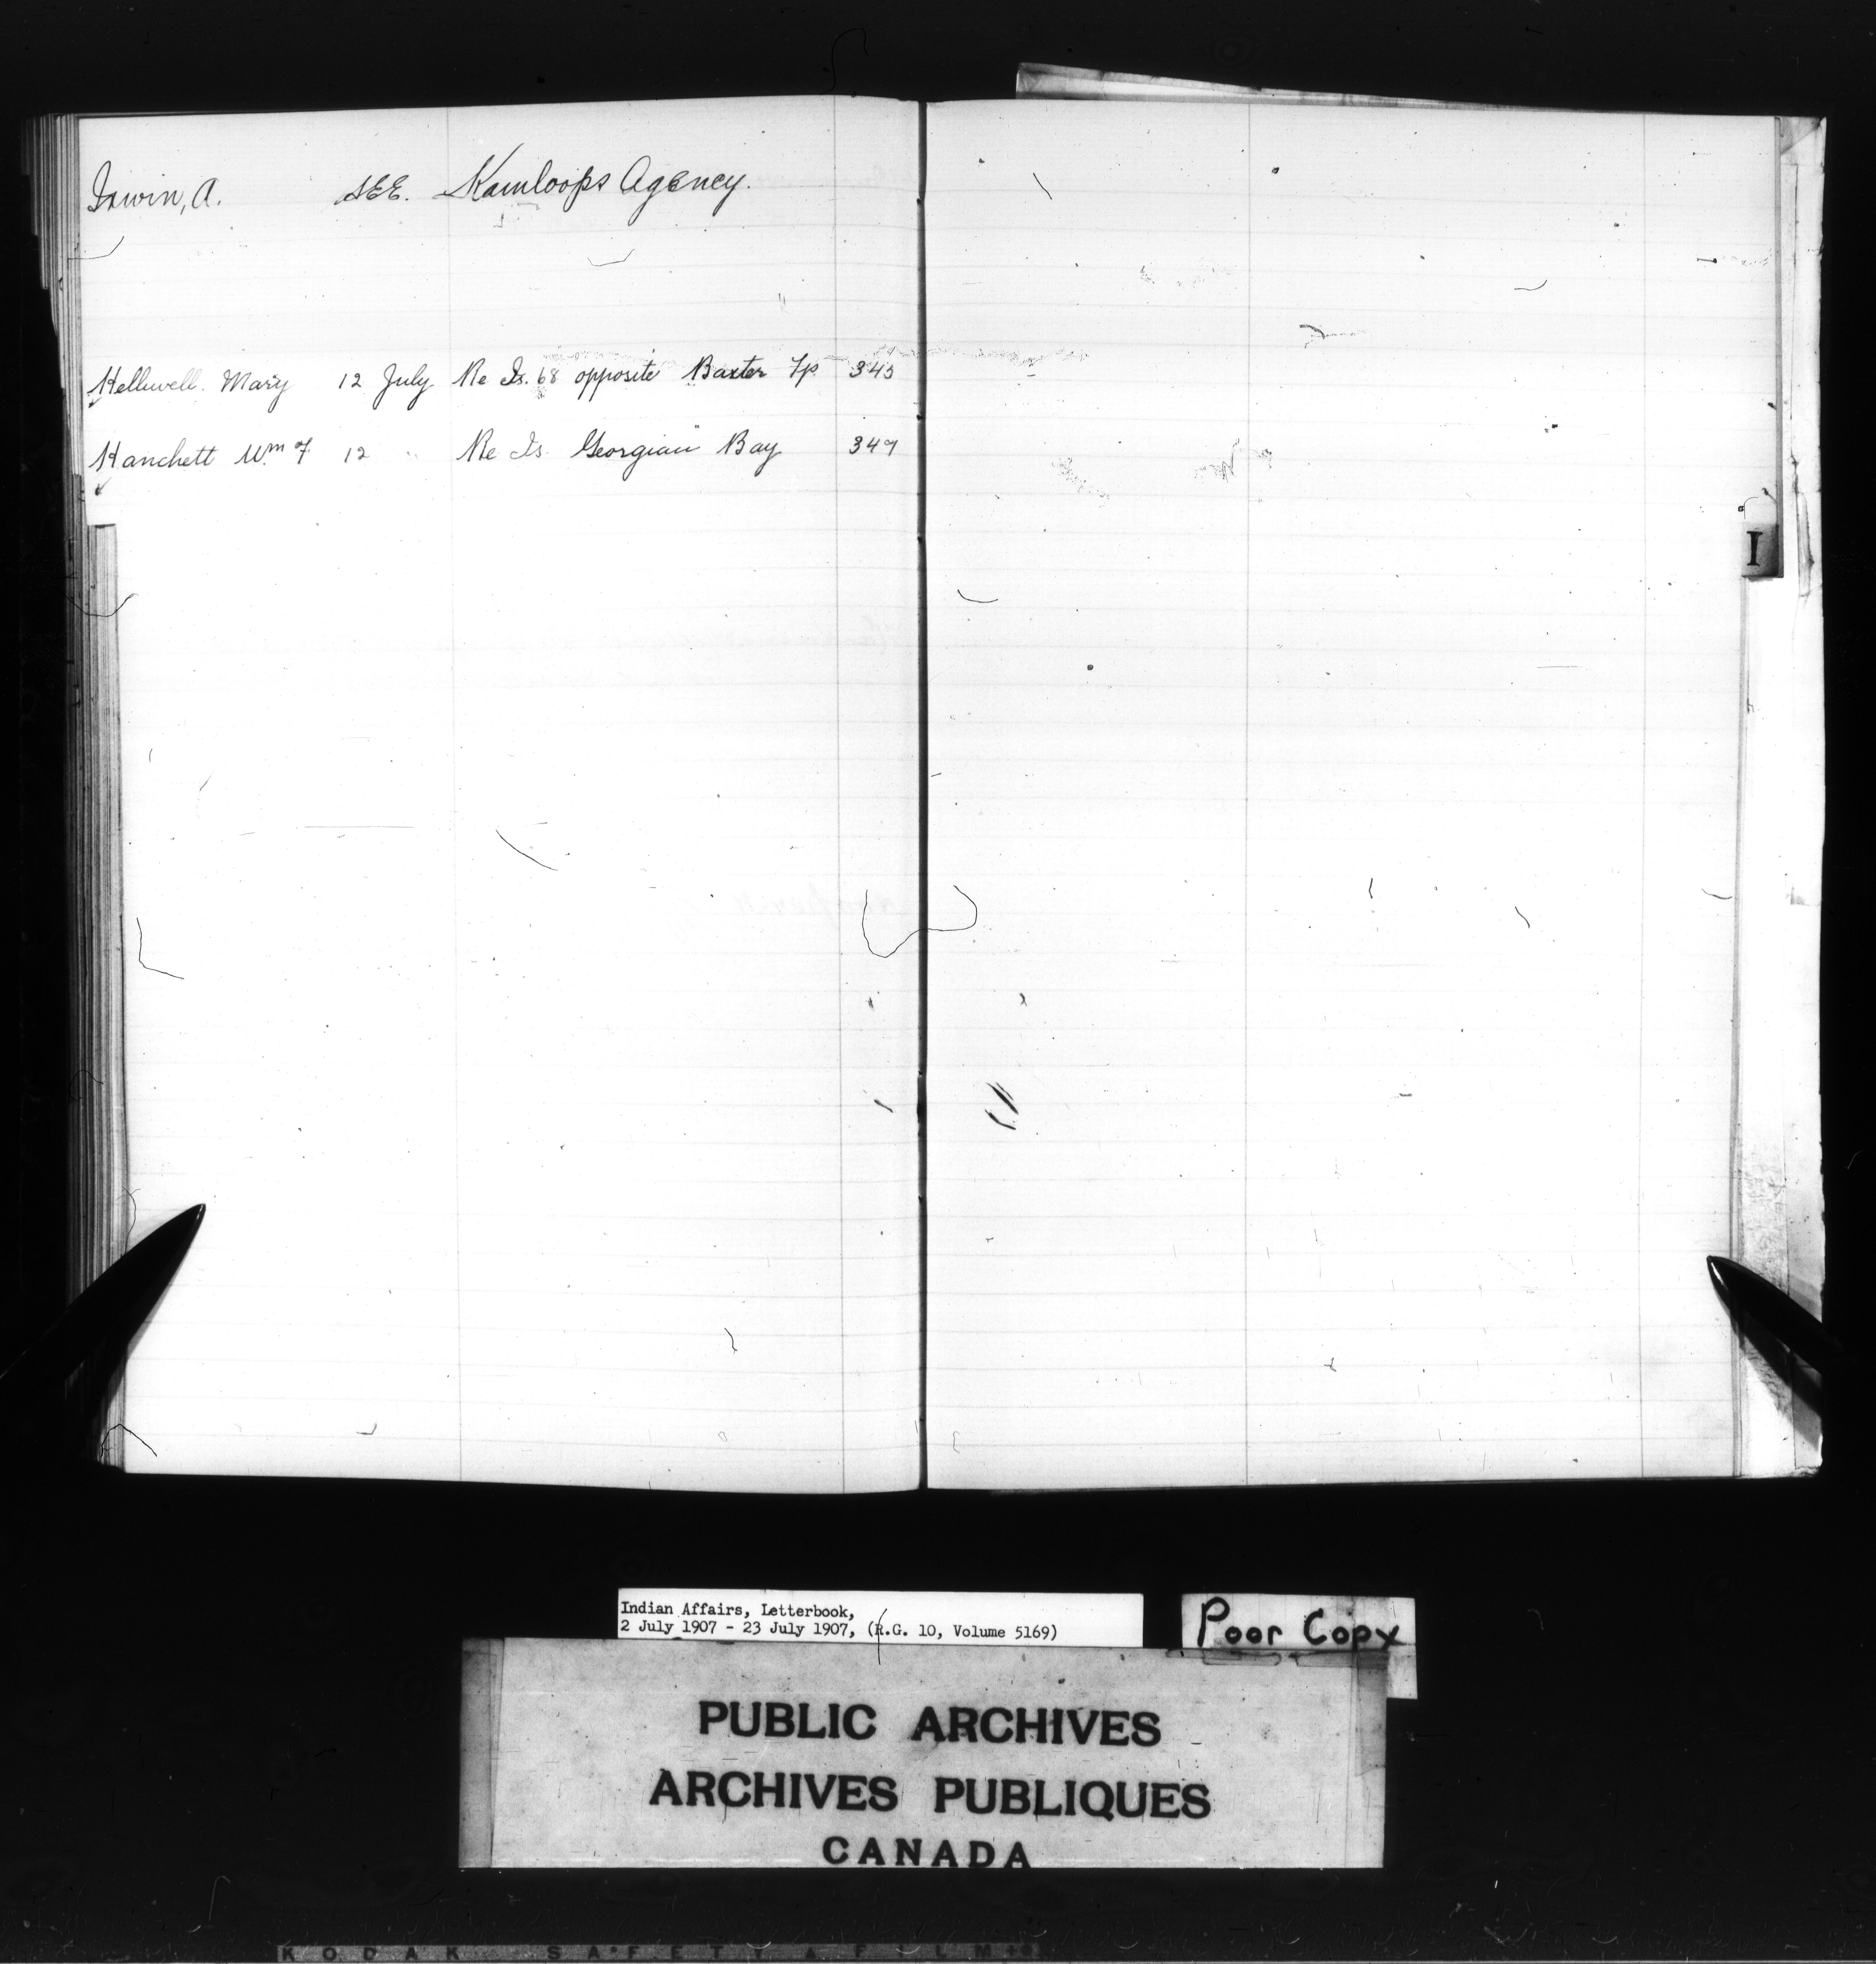 Irwin, A. SEE. Kamloops Agency.
Helliwell. Mary 12 July Re Is. 68 opposite Baxter Tp 345
Hanchett Wm F 12 " Re Is. Georgian Bay 347
I
Indian Affairs, Letterbook,
2 July 1907 - 23 July 1907, (R.G. 10, Volume 5169)
Poor Copy
PUBLIC ARCHIVES
ARCHIVES PUBLIQUES
CANADA
KODAK SAFETY FILM